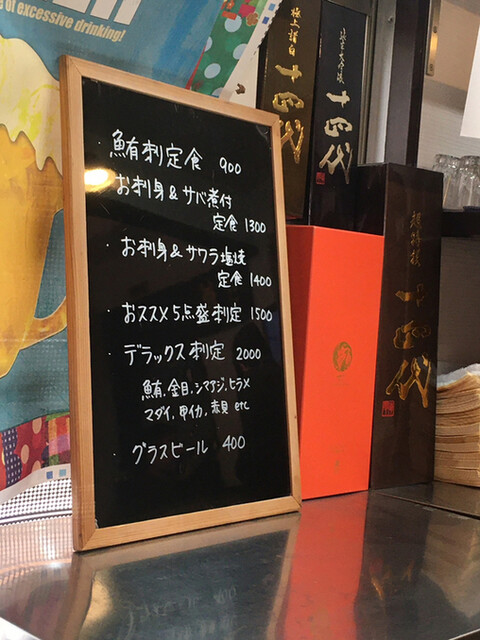 e of excessive drinking!
・鮪刺定食 900
お刺身&サバ煮付
定食 1300
・お刺身&サワラ塩焼
定食 1400
・おススメ5点盛刺定 1500
・デラックス刺定 2000
鮪,金目,シマアジ,ヒラメ
マダイ,甲イカ,赤貝 etc
・グラスビール 400
極上諸白
十四代
純米大吟醸
十四代
十四代